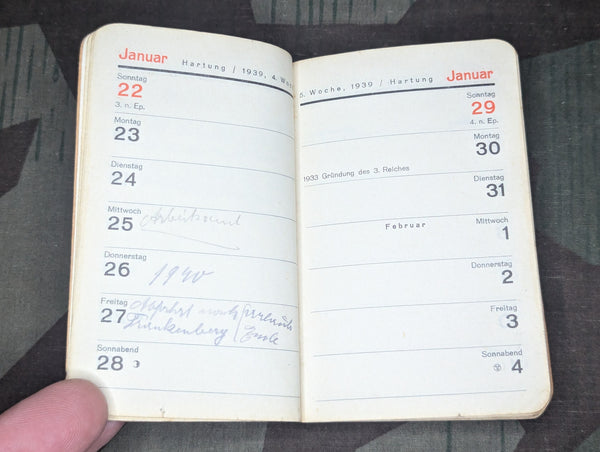 Januar Hartung / 1939, 4. Wo
Sonntag
22
3. n. Ep.
Montag
23
Dienstag
24
Mittwoch
25 Arbeitsamt
Donnerstag
26 1940
Freitag
27 Abfahrt nach Urlaub
Frankenberg Ende
Sonnabend
28
5. Woche, 1939 / Hartung Januar
Sonntag
29
4. n. Ep.
Montag
30
1933 Gründung des 3. Reiches
Dienstag
31
Februar
Mittwoch
1
Donnerstag
2
Freitag
3
Sonnabend
4